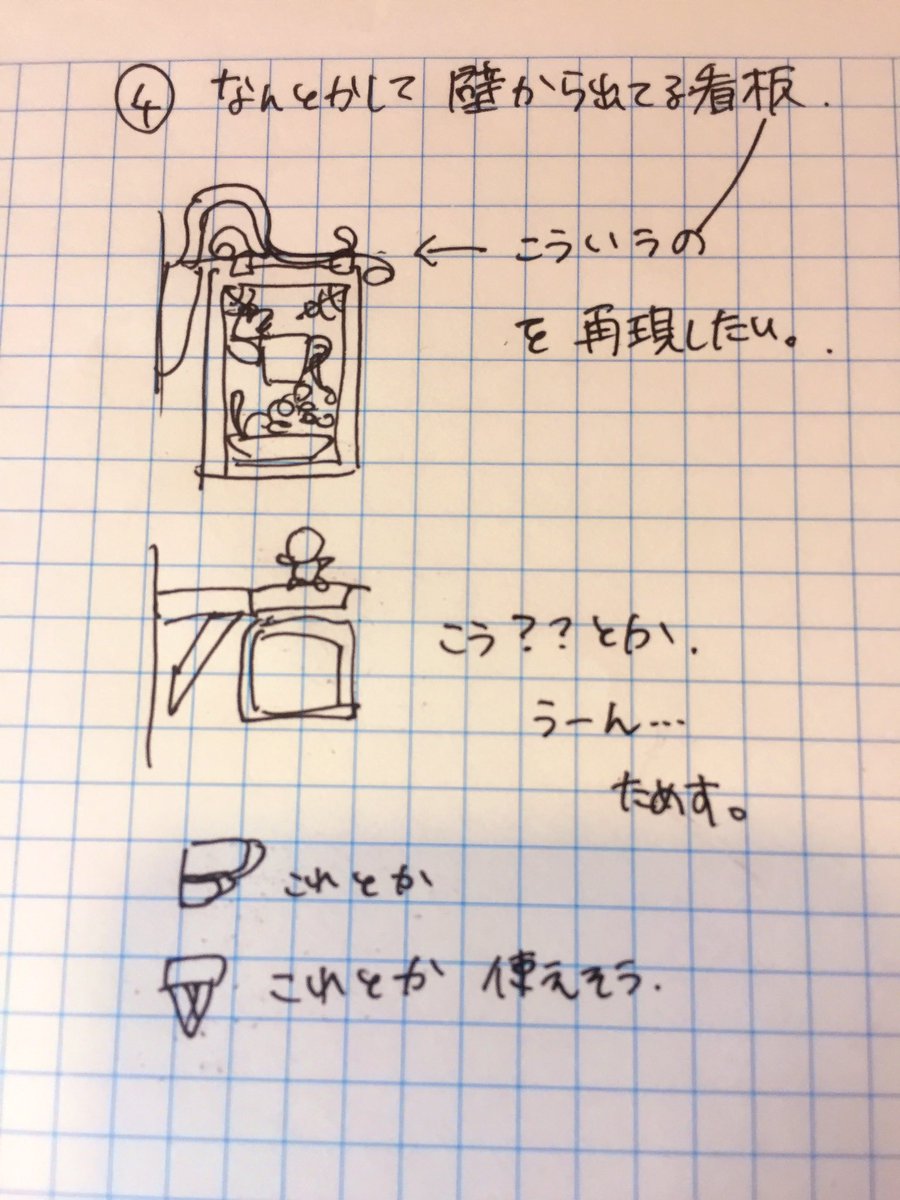 ④ なんとかして 壁から出てる看板.
← こういうの
を 再現したい。.
こう??とか.
うーん…
ためす。
これとか
これとか 使えそう.